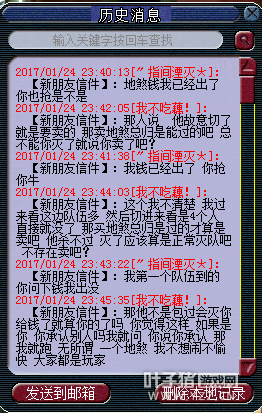 历史消息
输入关键字按回车查找
2017/01/24 23:40:13[〝指间湮灭*]:
【新朋友信件】: 地煞钱我已经出了
你也抢是不是
2017/01/24 23:42:05[我不吃藕！]:
【新朋友信件】: 那人说 他故意切了
就是要卖的 那卖地煞总归是能过的吧 总
不能你灭了就说你卖了吧？
2017/01/24 23:41:38[〝指间湮灭*]:
【新朋友信件】: 我钱已经出了 你抢
你牛
2017/01/24 23:44:03[我不吃藕！]:
【新朋友信件】: 这个我不清楚 我过
来看这边队伍多 然后切进来看是4个人
直接就没了 那买地煞总归是过的才算是
卖吧 他杀不过 灭了应该算是正常灭队吧
不存在卖吧？
2017/01/24 23:43:22[〝指间湮灭*]:
【新朋友信件】: 我第一个队伍到的
你问下钱我出没
2017/01/24 23:45:35[我不吃藕！]:
【新朋友信件】: 那他不是包过会灭你
给钱了就算你的了吗 你觉得这样 如果是
你 你承认别人吗我就问 你说你承认 那
我就跑 无所谓 一个地煞 我不想闹不愉
快 大家都是玩家
发送到邮箱
删除本地记录